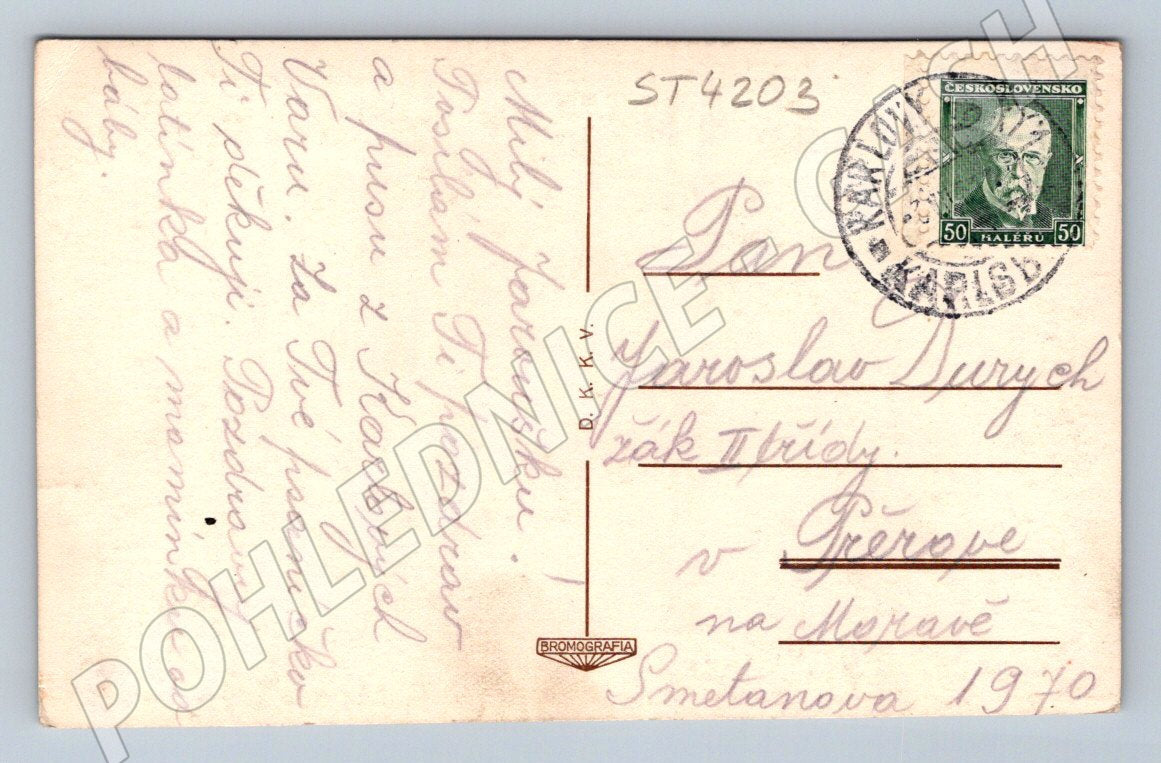 ST4203
ČESKOSLOVENSKO
50 HALÉŘŮ 50
KARLOVY VARY
KARLSB
Milý Jaroušku!
Posílám Ti pozdrav
a pusu z Karlových
Varů. Za Tvé psaníčko
Ti děkuji. Pozdravuj
tatínka a maminku od
báby.
D. K. K. V.
BROMOGRAFIA
Pan
Jaroslav Durych
žák II třídy.
v Přerově
na Moravě
Smetanova 1970
POHLEDNICE - CIH